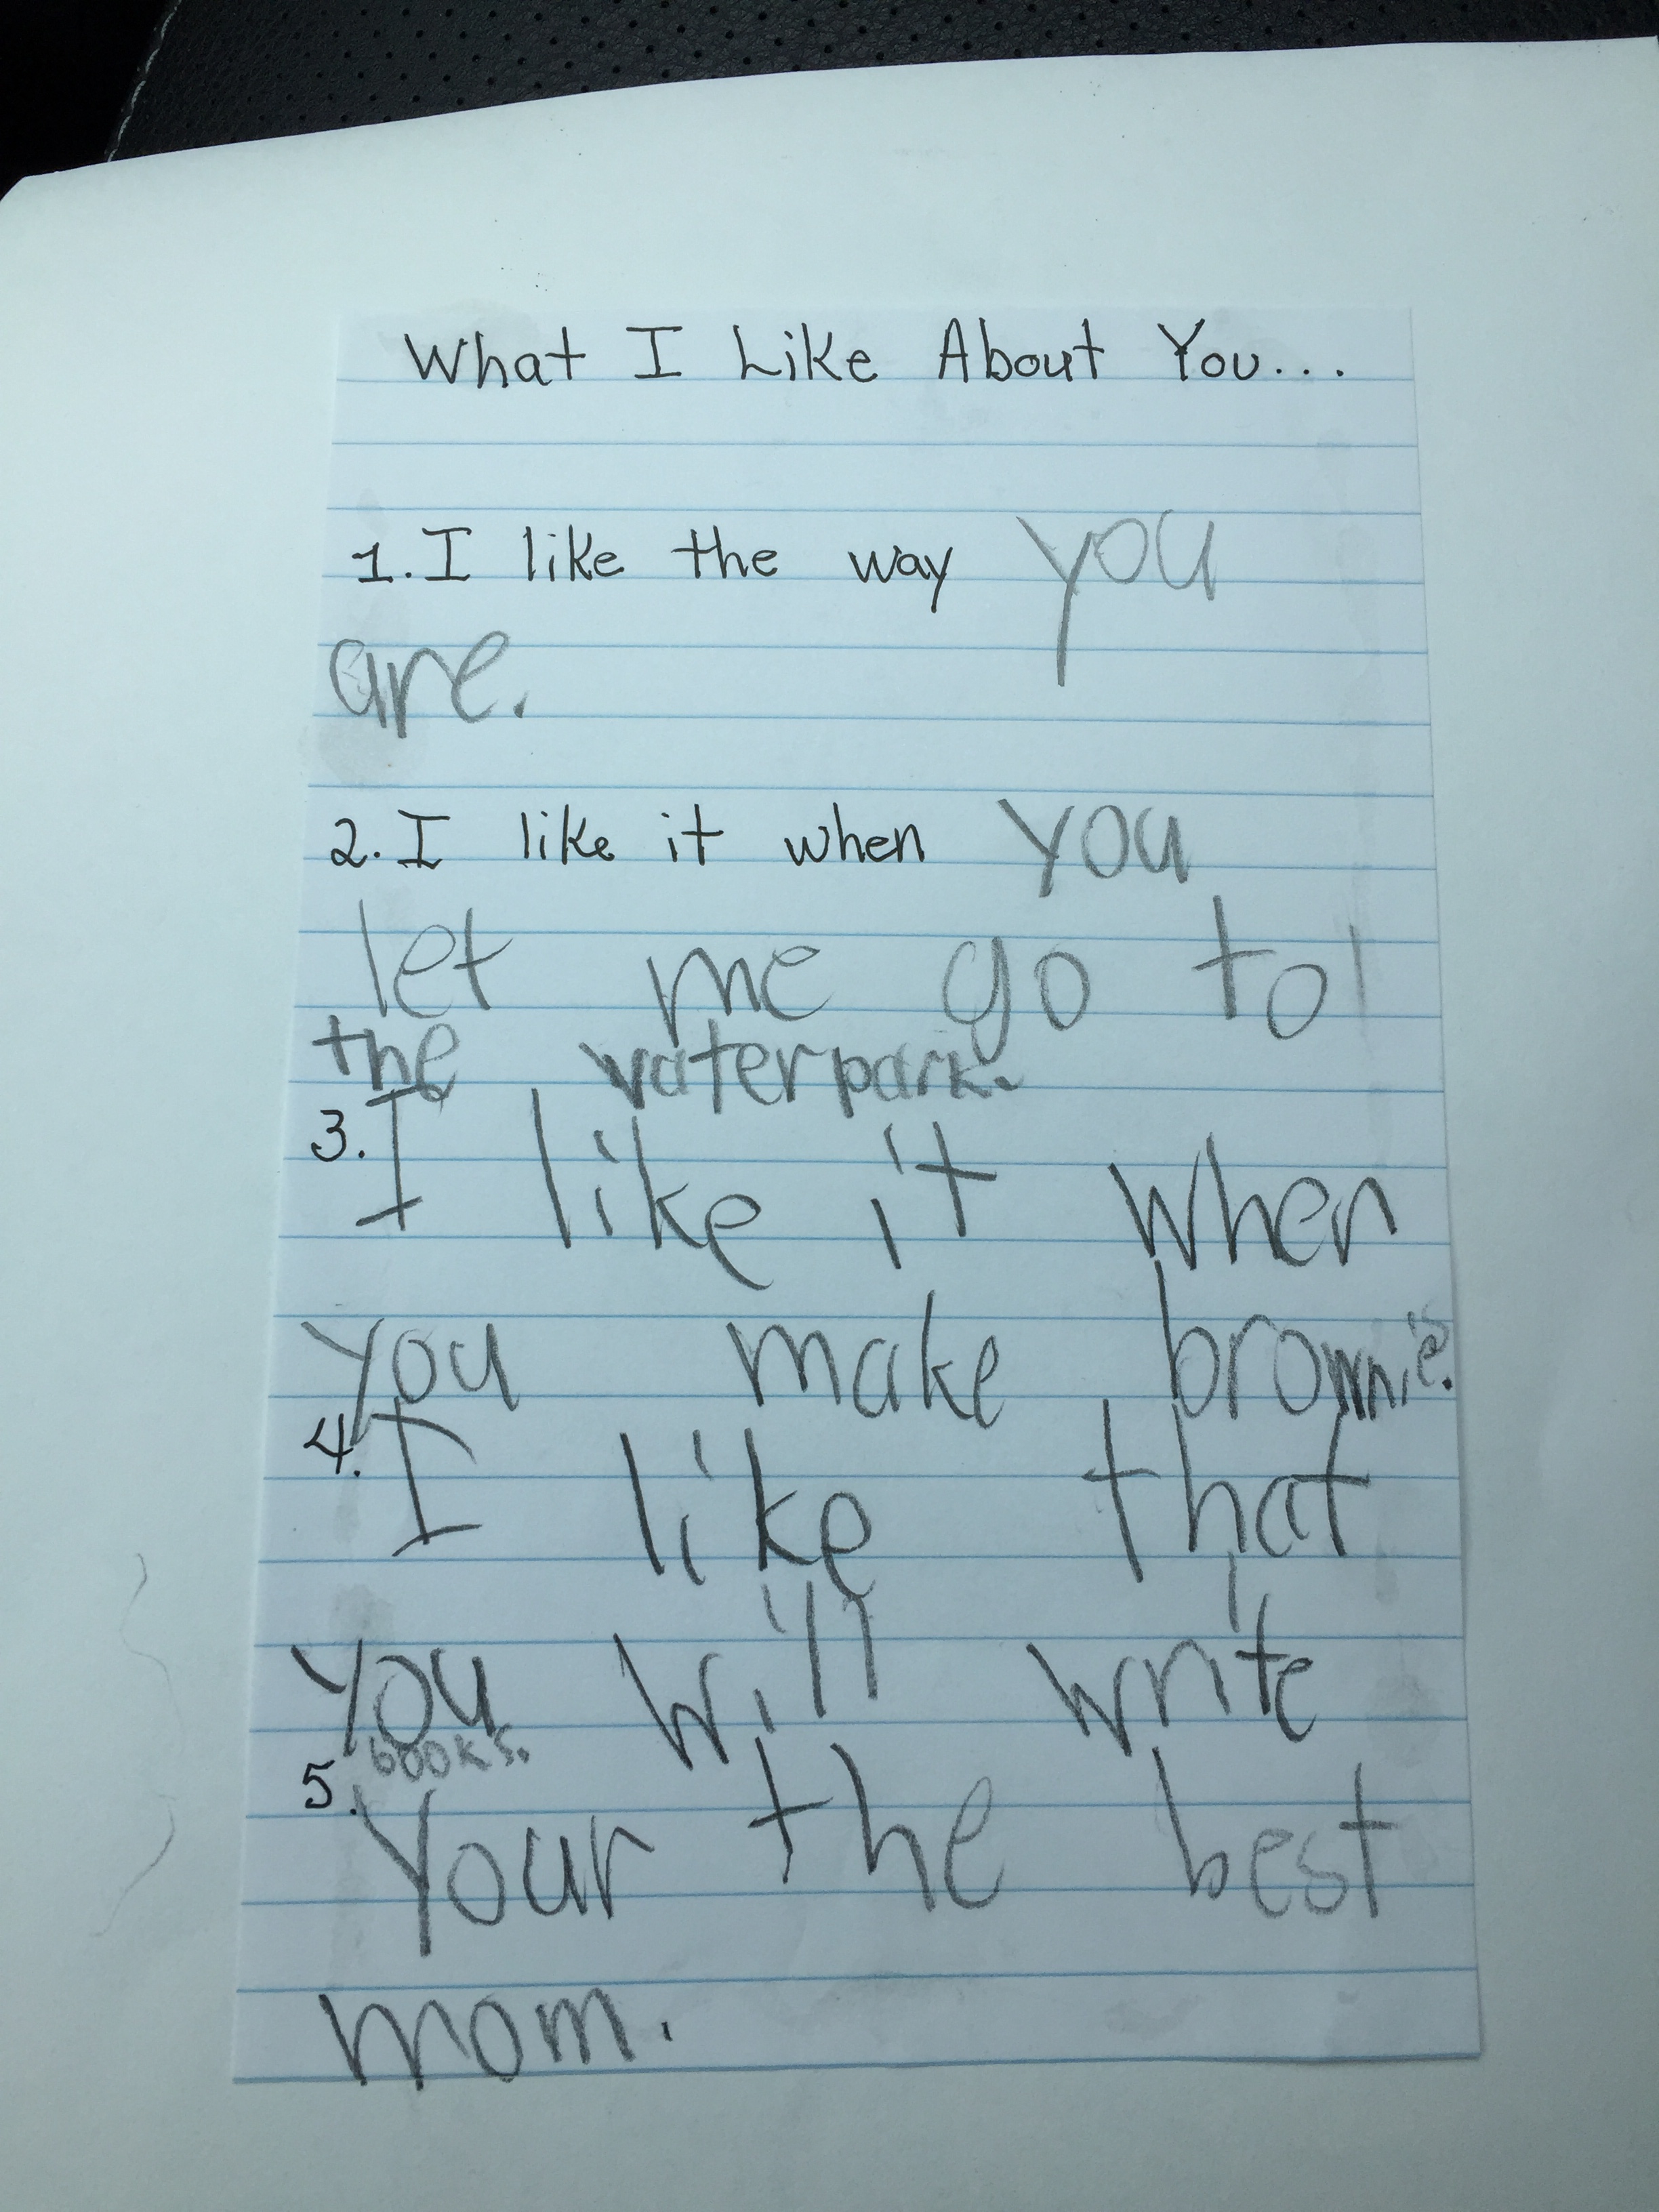 What I Like About You...
1. I like the way you
are.
2. I like it when you
let me go to
the waterpark.
3. I like it when
you make brownies.
4. I like that
you will write
books.
5. Your the best
mom.